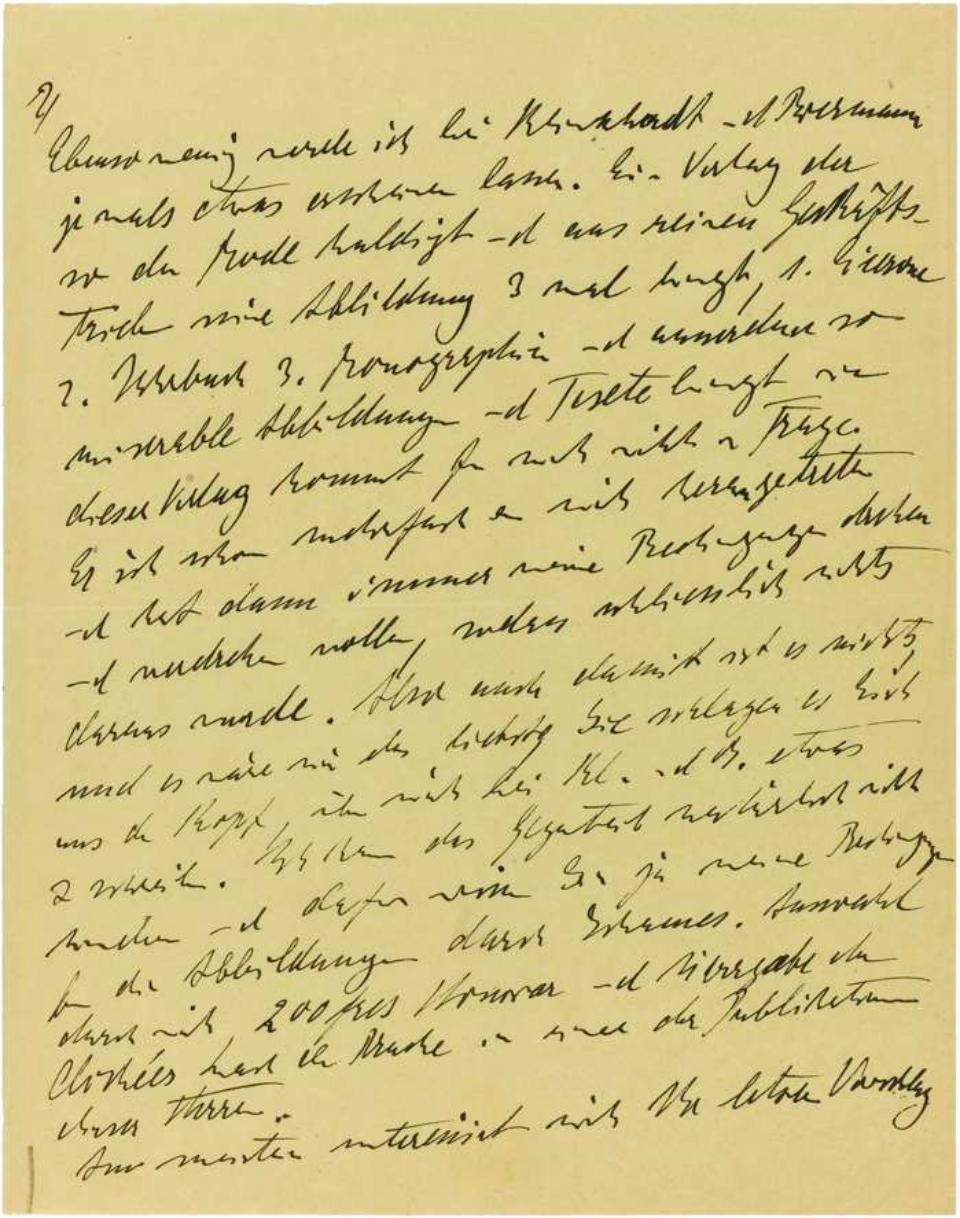 2/
Ebenso wenig werde ich bei Klinkhardt und Biermann
jemals etwas erscheinen lassen. Ein Verlag der
so der Mode huldigt und aus reinem Geschäfts-
trieb eine Abbildung 3 mal bringt, 1. Cicerone
2. Jahrbuch 3. Monographien und ausserdem so
miserable Abbildungen und Texte bringt
dieser Verlag kommt für mich nicht in Frage.
Er ist schon mehrfach an mich herangetreten
und hat dann immer meine Bedingungen drehen
und verdrehen wollen, sodass schliesslich nichts
daraus wurde. Also auch damit ist es nichts,
und es wäre mir das liebste Sie schlagen es sich
aus dem Kopf, über mich bei Kl. und B. etwas
z schreiben. Ich kann das Gegenteil natürlich nicht
und dafür wissen Sie ja meine Bedingungen
für die Abbildungen durch Auswahl
durch mich 200 frcs Honorar und Übergabe der
Clichées nach dem Drucke in einer der Publikationen
dieser Herren.
Am meisten interessiert mich Ihr letzter Vorschlag